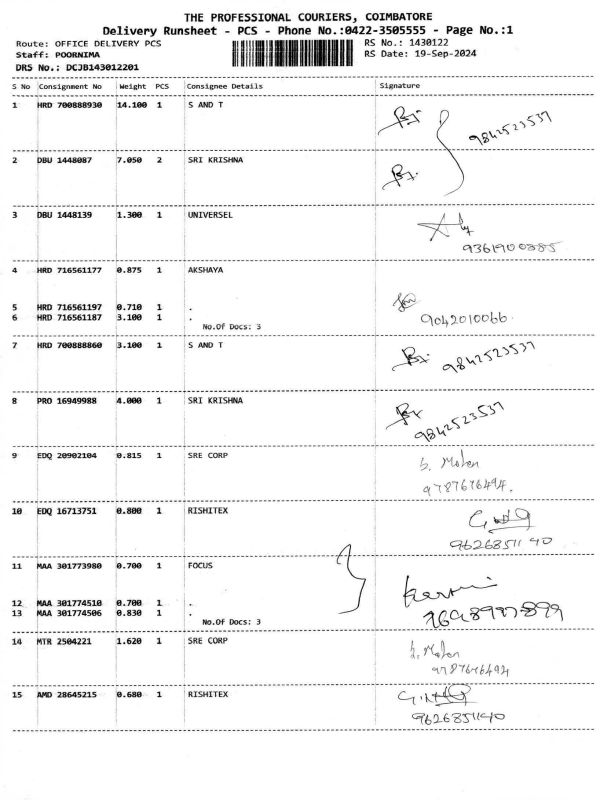 THE PROFESSIONAL COURIERS, COIMBATORE
Delivery Runsheet - PCS - Phone No.:0422-3505555 - Page No.:1
Route: OFFICE DELIVERY PCS RS No.: 1430122
Staff: POORNIMA RS Date: 19-Sep-2024
DRS No.: DCJB143012201
S No Consignment No Weight PCS Consignee Details Signature
1 HRD 700888930 14.100 1 S AND T
9842523537
2 DBU 1448087 7.050 2 SRI KRISHNA
3 DBU 1448139 1.300 1 UNIVERSEL
9361900885
4 HRD 716561177 0.875 1 AKSHAYA
5 HRD 716561197 0.710 1 .
6 HRD 716561187 3.100 1 . 9042010066.
No.Of Docs: 3
7 HRD 700888860 3.100 1 S AND T 9842523537
8 PRO 16949988 4.000 1 SRI KRISHNA
9842523537
9 EDQ 20902104 0.815 1 SRE CORP
9787676494.
10 EDQ 16713751 0.800 1 RISHITEX
9626851140
11 MAA 301773980 0.700 1 FOCUS
12 MAA 301774510 0.700 1 .
13 MAA 301774506 0.830 1 .
No.Of Docs: 3
14 MTR 2504221 1.620 1 SRE CORP
9787676494
15 AMD 28645215 0.680 1 RISHITEX
9626851140